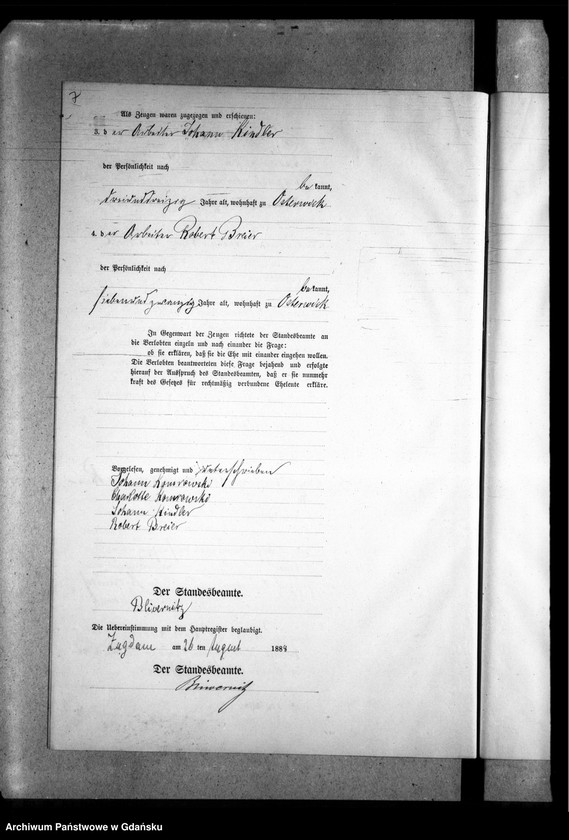 7
Als Zeugen waren zugezogen und erschienen:
3. d er Arbeiter Johann Kindler
der Persönlichkeit nach
be kannt,
dreiunddreizig Jahre alt, wohnhaft zu Osterwick
4. d er Arbeiter Robert Breier
der Persönlichkeit nach
be kannt,
siebenundzwanzig Jahre alt, wohnhaft zu Osterwick
In Gegenwart der Zeugen richtete der Standesbeamte an
die Verlobten einzeln und nach einander die Frage:
ob sie erklären, daß sie die Ehe mit einander eingehen wollen.
Die Verlobten beantworteten diese Frage bejahend und erfolgte
hierauf der Ausspruch des Standesbeamten, daß er sie nunmehr
kraft des Gesetzes für rechtmäßig verbundene Eheleute erkläre.
Vorgelesen, genehmigt und unterschrieben
Johann Komrowski
Charlotte Komrowski
Johann Kindler
Robert Breier
Der Standesbeamte.
Die Uebereinstimmung mit dem Hauptregister beglaubigt.
Zugdam am 26 ten August 188
Der Standesbeamte.
Archiwum Państwowe w Gdańsku